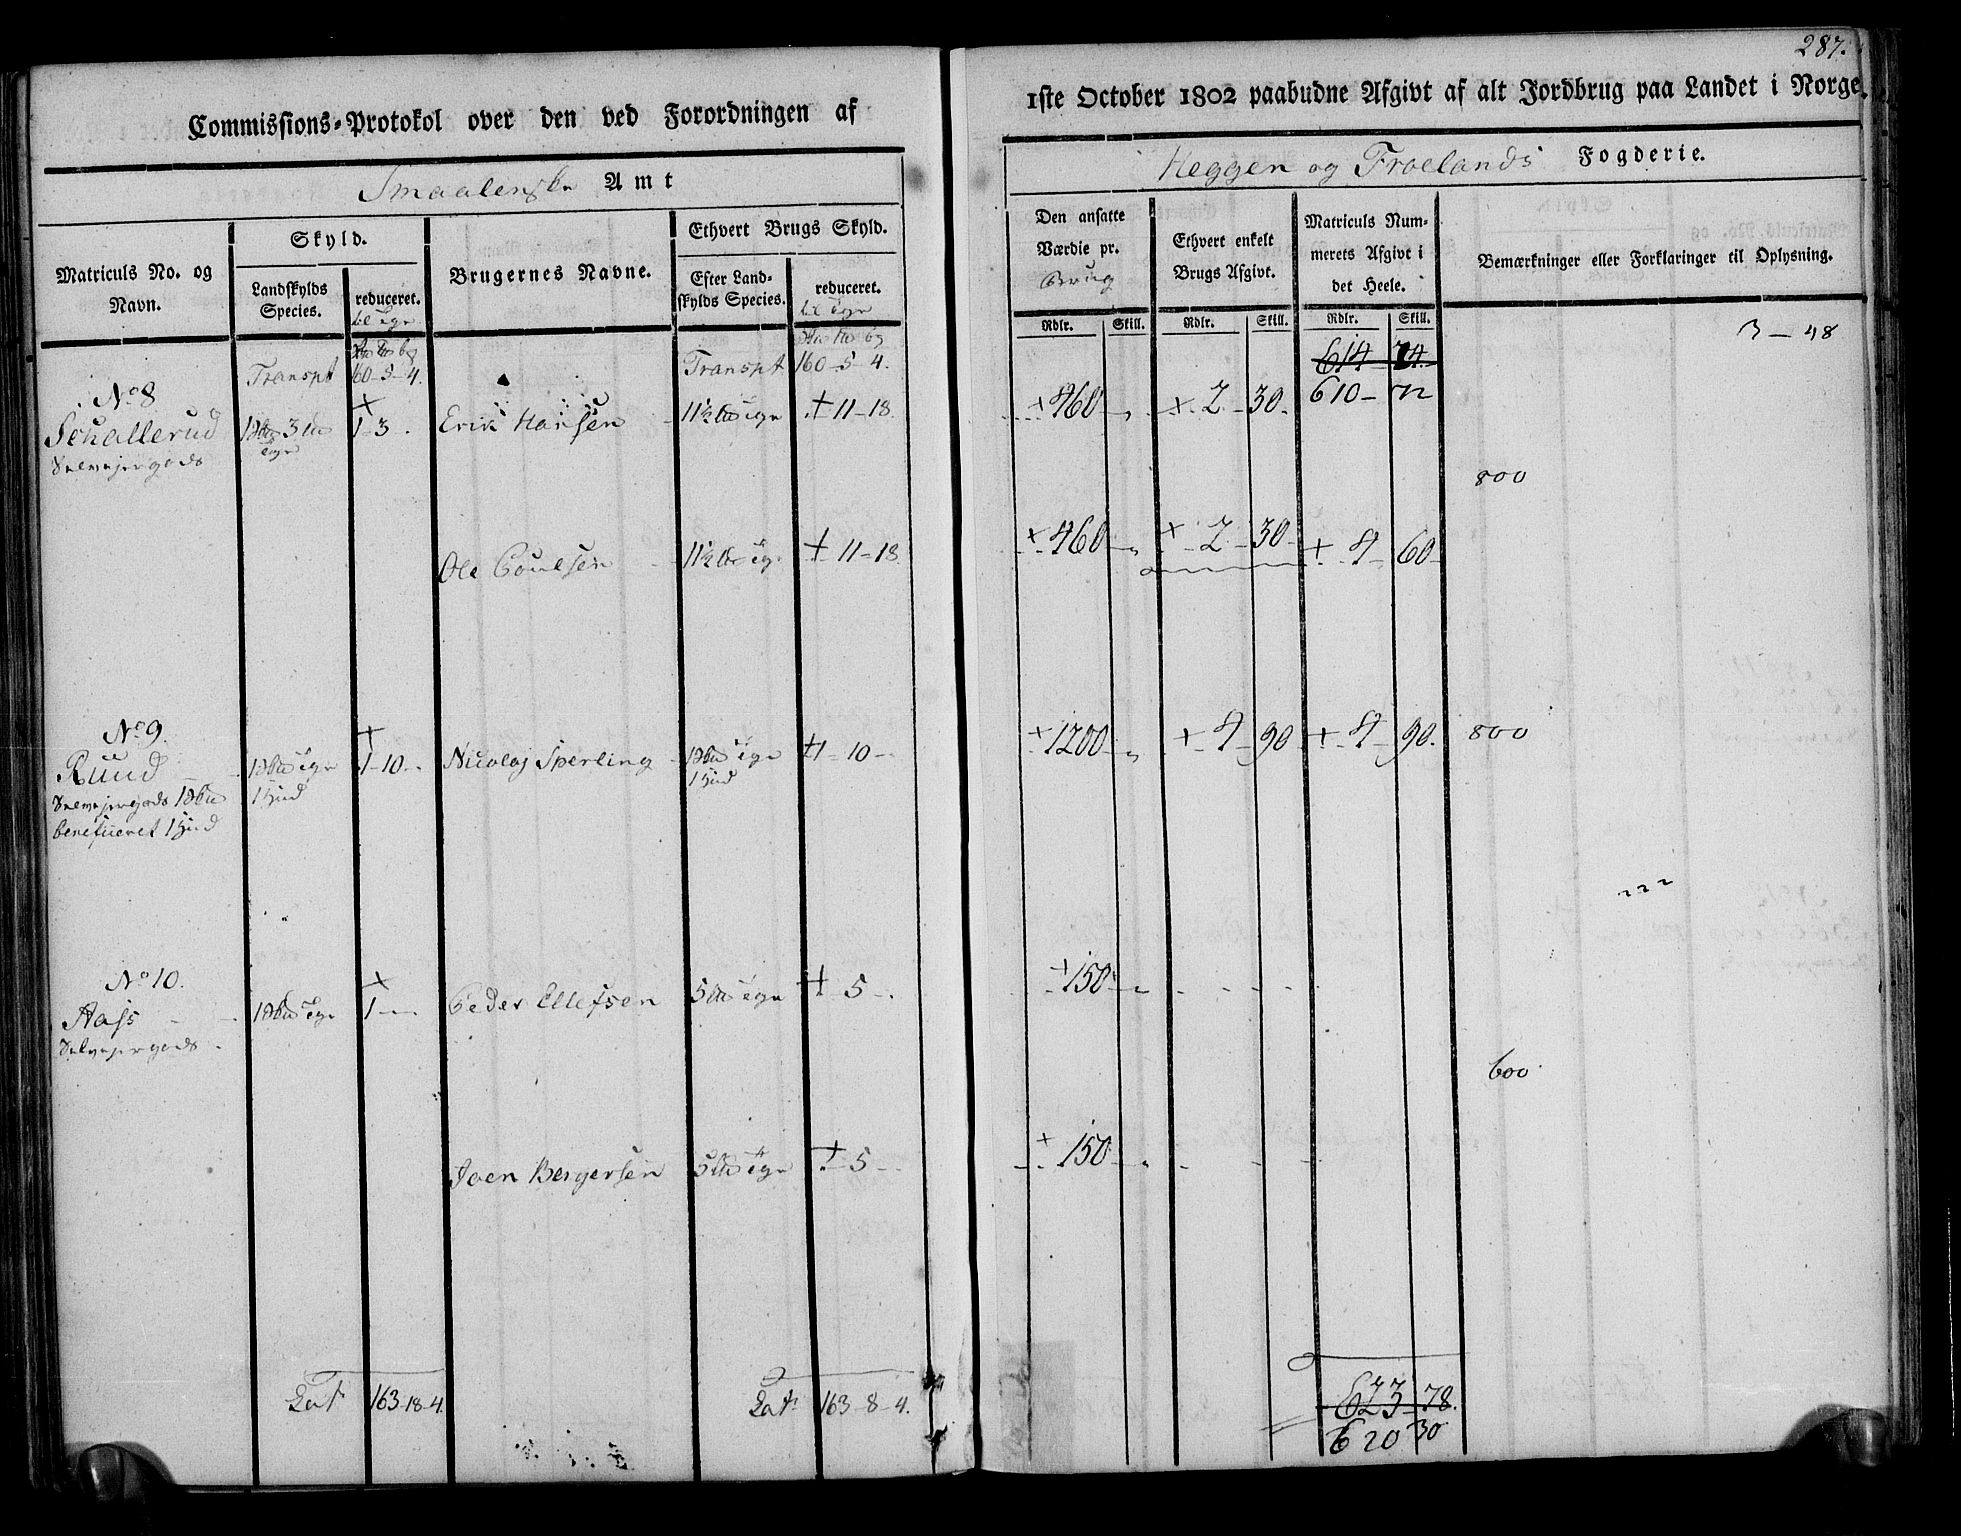 287.
Commissions-Protokol over den ved Forordningen af
1ste October 1802 paabudne Afgivt af alt Jordbrug paa Landet i Norge.
Smaalenske Amt
Heggen og Froelands Fogderie.
Matriculs No. og Navn.
Skyld.
Landskylds Species.
reduceret.
Brugernes Navne.
Ethvert Brugs Skyld.
Efter Landskylds Species.
reduceret.
Den ansatte Værdie pr. Brug
Ethvert enkelt Brugs Afgivt.
Matriculs Nummerets Afgivt i det Heele.
Bemærkninger eller Forklaringer til Oplysning.
Rdlr. Skill. Rdlr. Skill. Rdlr. Skill.
3 - 48
Transpt 160-5-4. Transpt 160-5-4. 614 74
610 - 72
No 8
Schallerud 1 3 1-3. Erik Hansen 11½ + 11-18. + 460 + 2 - 30.
Selvejergods
800
Ole Poulsen 11½ + 11-18. + 460 + 2 - 30 + 4 60
No 9.
Ruud 1-10 Nicolaj Sperling +1-10 + 1200 + 4 - 90 + 4 - 90. 800
Selvejergods
beneficeret 1 Hud
1 Hud 1 Hud
No 10.
Aass 1 Peder Ellefsen 5 + 5 + 150
Selvejergods
600
Joen Bergersen 5 + 5 + 150
Lat 163-18-4. Lat 163-8-4. 623-78.
620 30